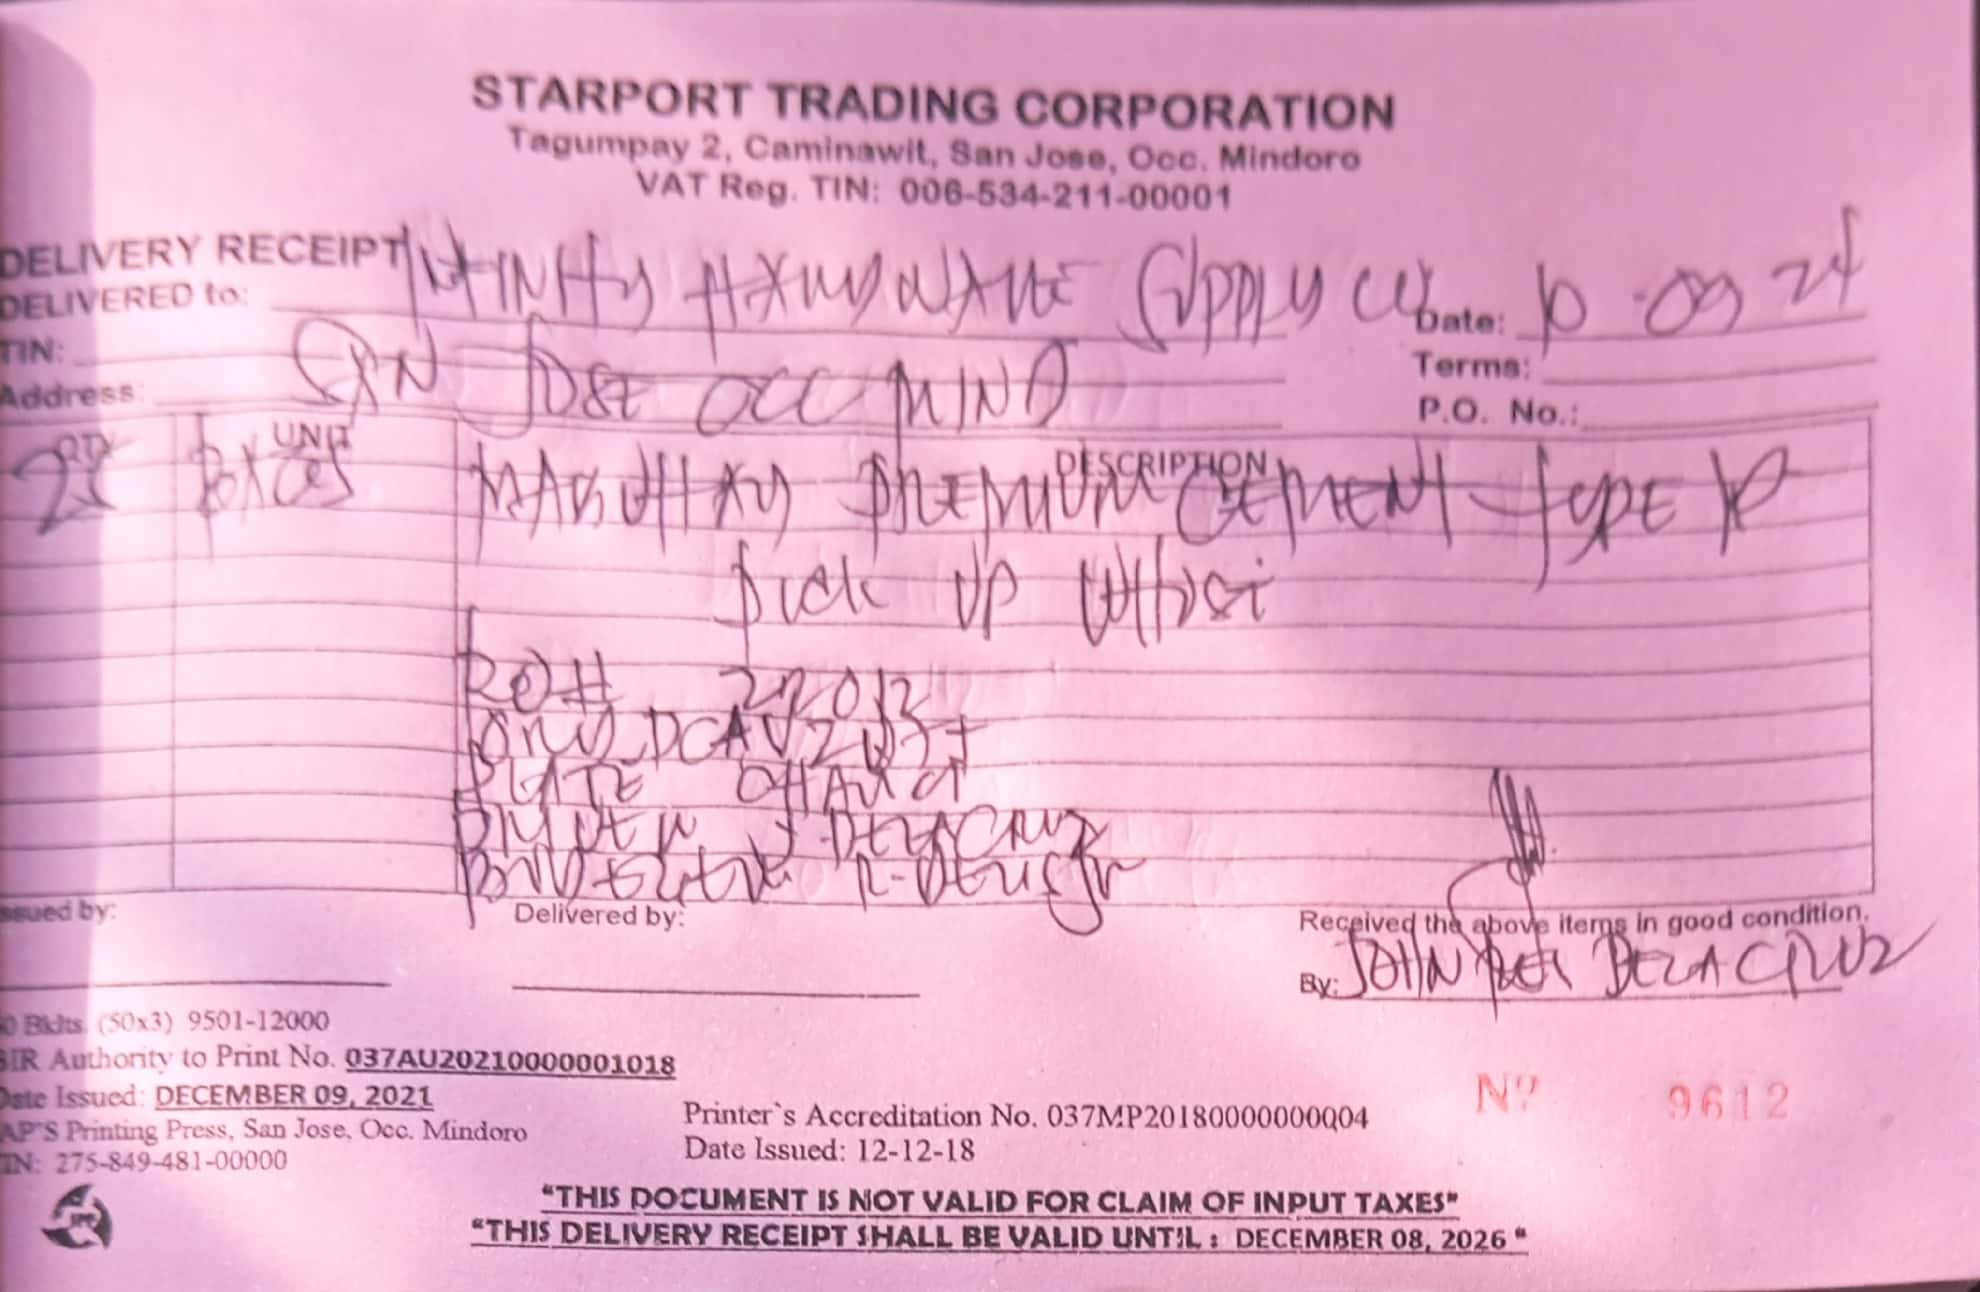 STARPORT TRADING CORPORATION
Tagumpay 2, Caminawit, San Jose, Occ. Mindoro
VAT Reg. TIN: 006-534-211-00001
DELIVERY RECEIPT
DELIVERED to: HARDWARE SUPPLY Date: 10-09 24
TIN: Terms:
Address: SAN JOSE OCC MIND P.O. No.:
QTY UNIT DESCRIPTION
PREMIUM CEMENT TYPE 1P
PICK UP
PLATE
DRIVER J-DELACRUZ
ssued by: Delivered by: Received the above items in good condition.
By: JOHN DELA CRUZ
0 Bklts. (50x3) 9501-12000
BIR Authority to Print No. 037AU20210000001018
Date Issued: DECEMBER 09, 2021
AP'S Printing Press, San Jose, Occ. Mindoro
TIN: 275-849-481-00000
Printer`s Accreditation No. 037MP20180000000004
Date Issued: 12-12-18
Nº 9612
"THIS DOCUMENT IS NOT VALID FOR CLAIM OF INPUT TAXES"
"THIS DELIVERY RECEIPT SHALL BE VALID UNTIL : DECEMBER 08, 2026 "